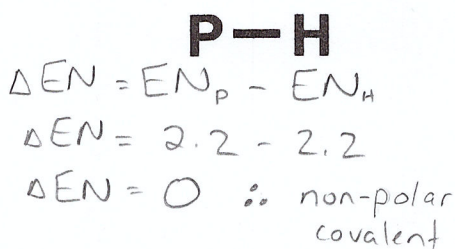 P—H
ΔEN = EN_P - EN_H
ΔEN = 2.2 - 2.2
ΔEN = 0 ∴ non-polar
covalent